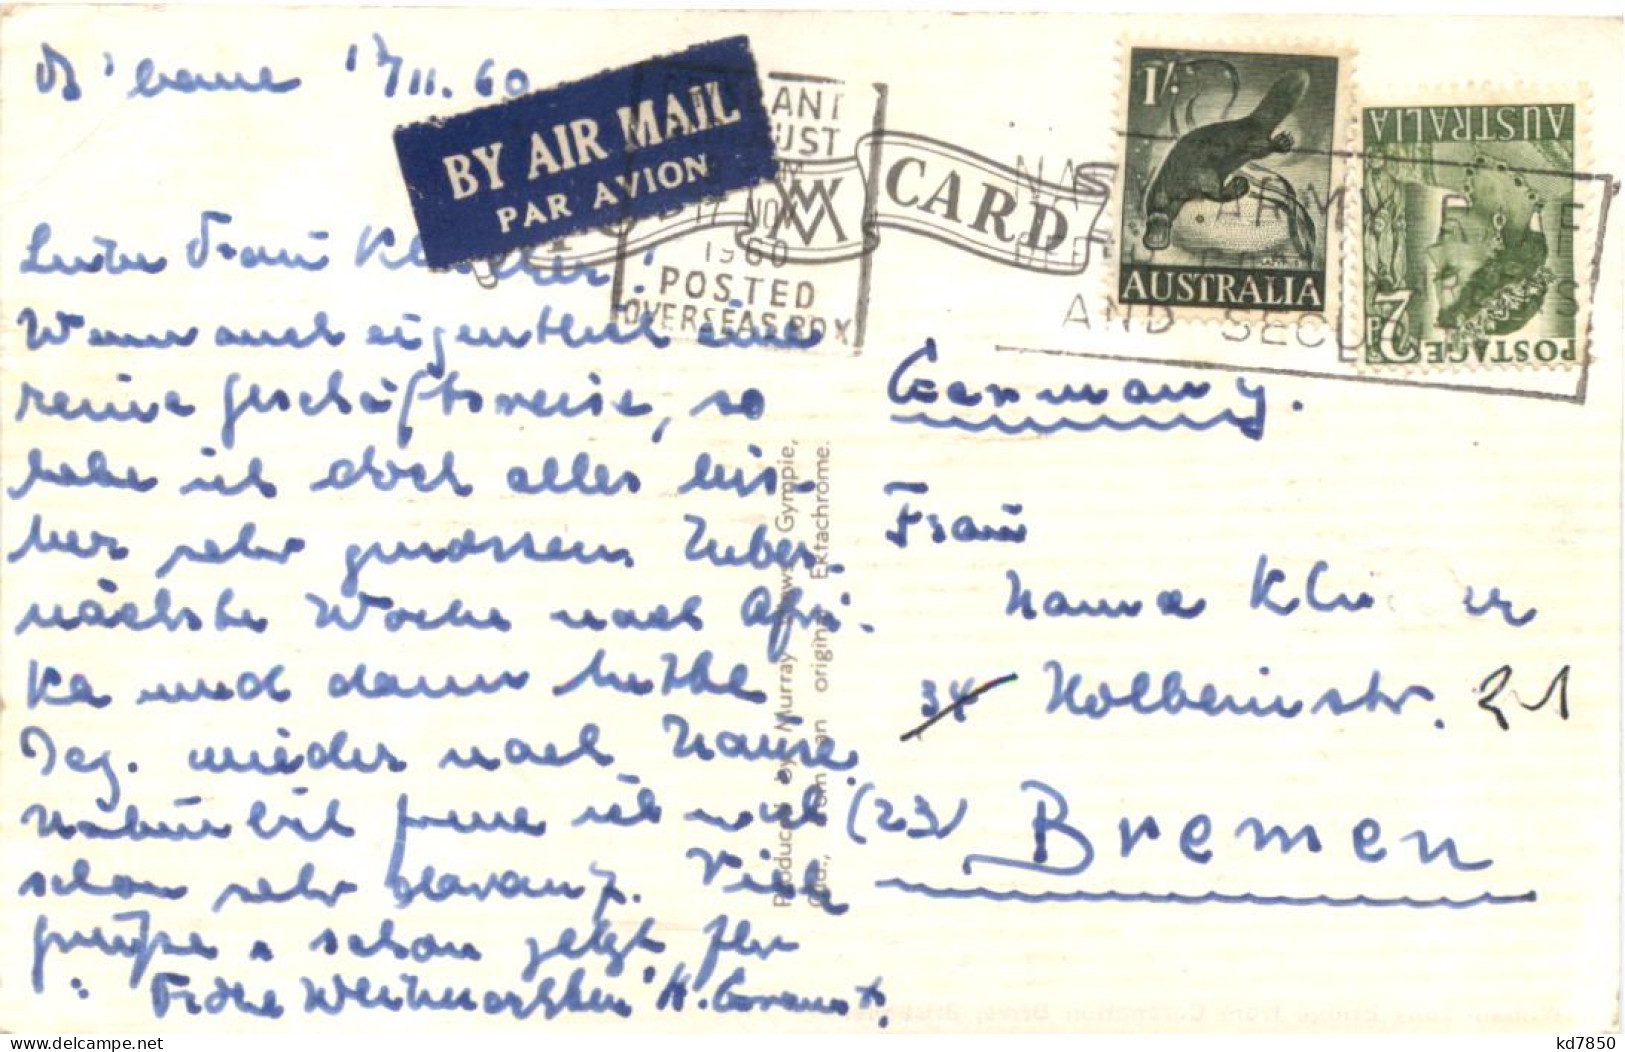 B'bane 17/11.60
BY AIR MAIL
PAR AVION
CARD
17 NOV
1960
POSTED
OVERSEAS BOX
AND
1/-
AUSTRALIA
AUSTRALIA
2
POSTAGE
Liebe Frau
Wenn auch eigentlich eine
reine Geschäftsreise, so
habe ich doch alles bis-
her sehr genossen
nächste Woche nach Afri-
ka und dann
Tag. wieder nach Hause.
Natürlich freue ich mich
schon sehr darauf. Viele
Grüße u. schon jetzt
Frohe Weihnachten
Germany.
Frau
Hanna
34 Holbeinstr. 21
(23) Bremen
Produced by Murray Views, Gympie,
Qld., from an original Ektachrome.
kd7850